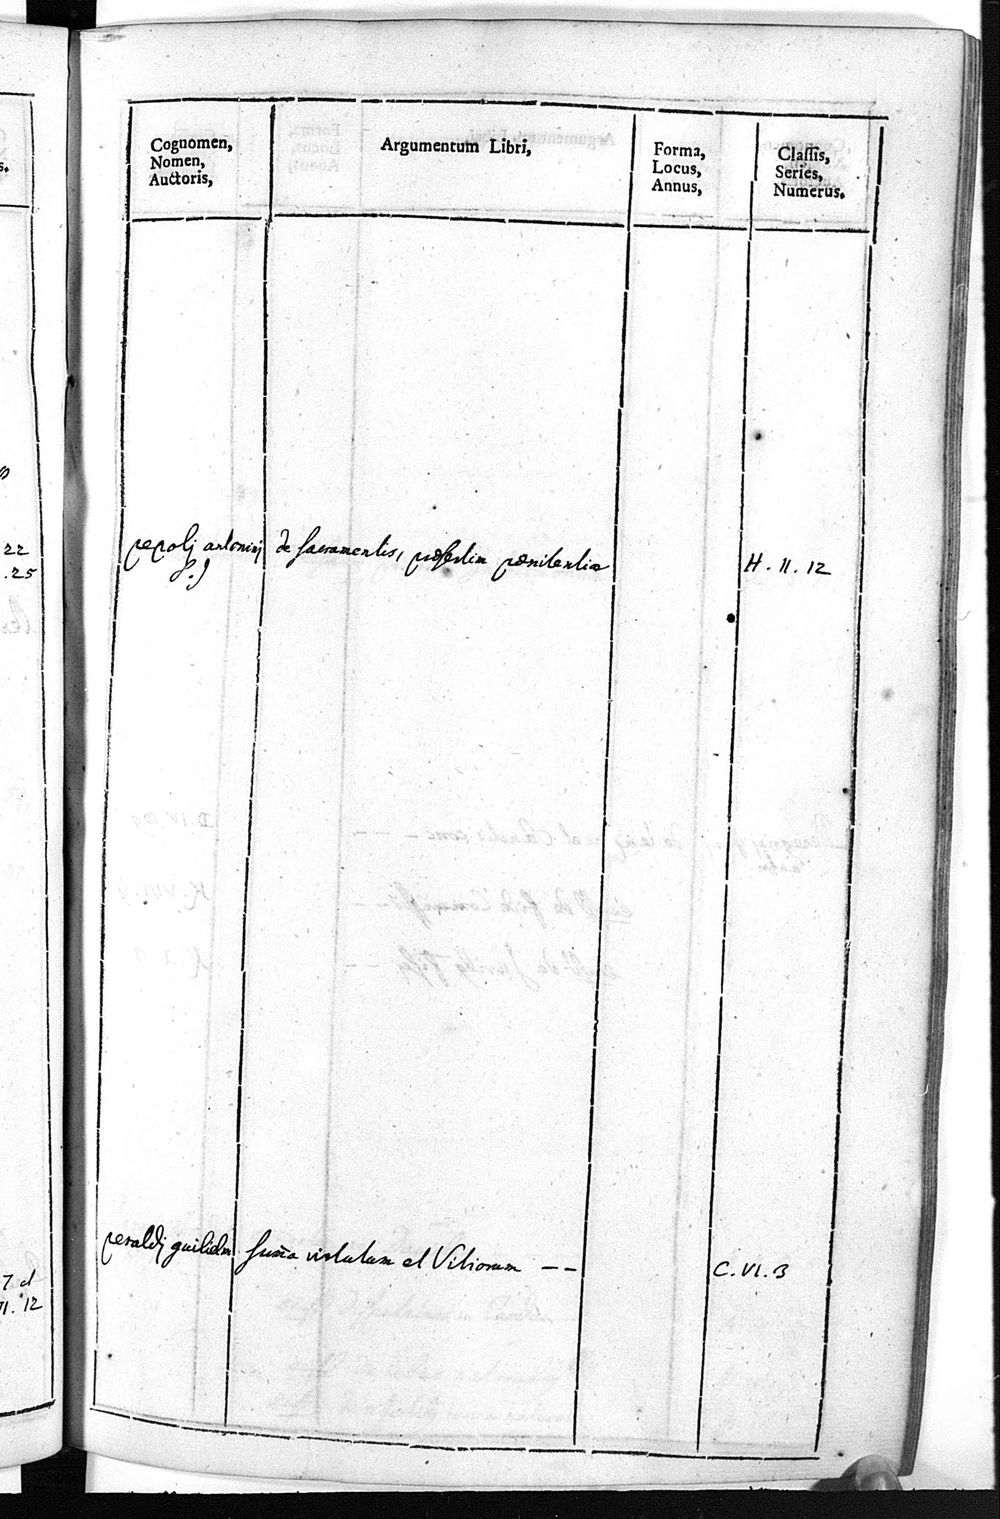 Cognomen,
Nomen,
Auctoris,
Argumentum Libri,
Forma,
Locus,
Annus,
Classis,
Series,
Numerus.
pepolj antoninj de sacramentis, præsertim pœnitentia H. II. 12
S.J
peraldj guilielm summa virtutum et Vitiorum -- C. VI. B
22
.25
7 et
II. 12